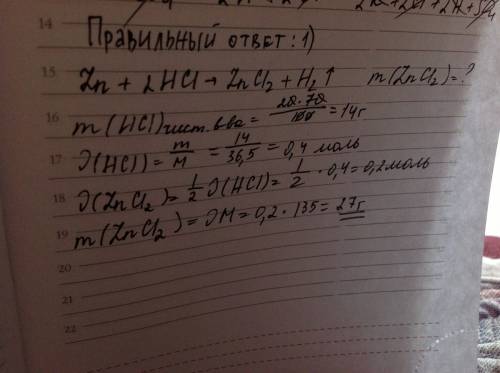 14
Правильный ответ: 1)
15 Zn + 2HCl → ZnCl₂ + H₂↑ m(ZnCl₂) = ?
16 m(HCl)чист. в-ва = 20·70/100 = 14г
17 ν(HCl) = m/M = 14/36,5 = 0,4 моль
18 ν(ZnCl₂) = 1/2 ν(HCl) = 1/2 · 0,4 = 0,2 моль
19 m(ZnCl₂) = νM = 0,2 · 135 = 27г
20
21
22